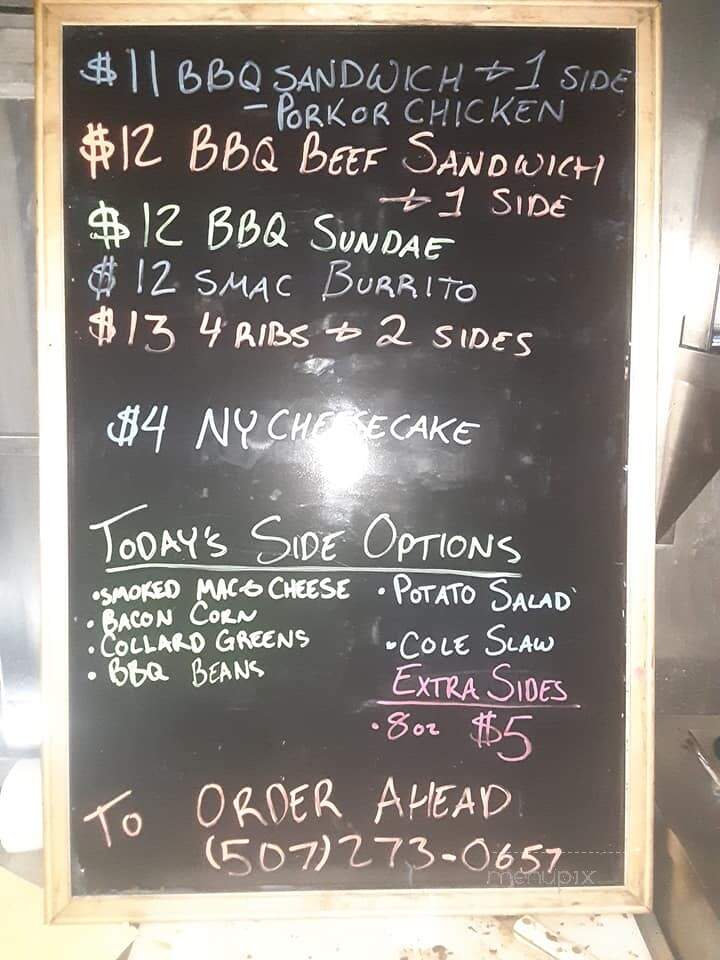 $11 BBQ SANDWICH + 1 SIDE
- PORK OR CHICKEN
$12 BBQ BEEF SANDWICH
+ 1 SIDE
$12 BBQ SUNDAE
$12 SMAC BURRITO
$13 4 RIBS + 2 SIDES
$4 NY CHEESECAKE
TODAY'S SIDE OPTIONS
• SMOKED MAC & CHEESE
• BACON CORN
• COLLARD GREENS
• BBQ BEANS
• POTATO SALAD
• COLE SLAW
EXTRA SIDES
• 8 oz $5
TO ORDER AHEAD
(507) 273-0657
menupix